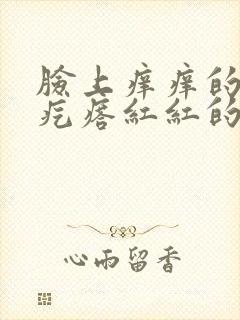 臉上痒痒的
疙瘩紅紅的
心雨留香